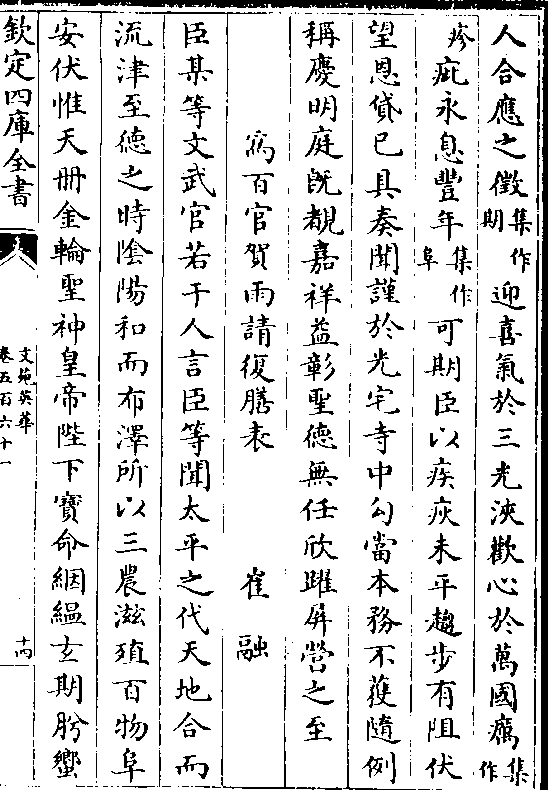 人合應之徵集作期迎喜氣於三光浹歡心於萬國癘集作
疹疵永息豐年集作阜可期臣以疾疢未平趨步有阻伏
望恩貸已具奏聞謹於光宅寺中勾當本務不獲隨例
稱慶明庭既覩嘉祥益彰聖德無任欣躍屏營之至
爲百官賀雨請復膳表 崔融
臣某等文武官若干人言臣等聞太平之代天地合而
流津至德之時陰陽和而布澤所以三農滋殖百物阜
安伏惟天冊金輪聖神皇帝陛下寶命絪縕玄期肹蠁
欽定四庫全書
文苑英華
卷五百六十一
十四